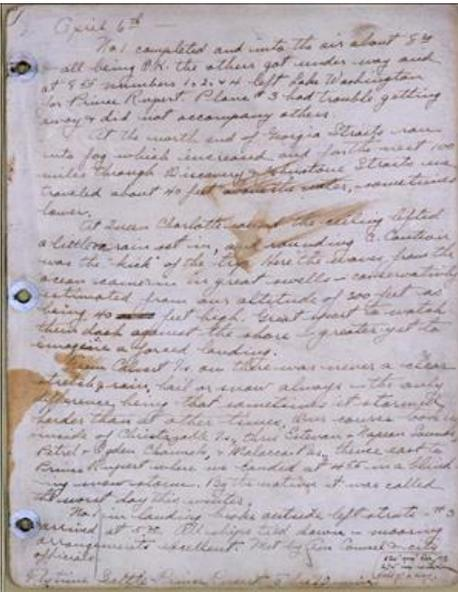 April 6th
No. 1 completed and into the air about 8
all being O.K. the others got under way and
at 8 numbers 1, 2, & 4 left Lake Washington
for Prince Rupert. Plane #3 had trouble getting
away & did not accompany others.
At the north end of Georgia Straits ran
into fog which increased and for the next 100
miles through Discovery & Johnstone Straits we
traveled about 40 feet the water, sometimes
lower.
At Queen Charlotte sound the ceiling lifted
a little rain set in, and rounding C. Caution
was the "kick" of the trip. Here the waves from the
ocean came in in great swells - conservatively
estimated from our altitude of 200 feet as
being 40 feet high. Great sport to watch
them dash against the shore & greater yet to
imagine a forced landing.
From Calvert Is on there was never a clear
stretch, rain, hail or snow always - the only
difference being that sometimes it stormed
harder than at other times. Our course
inside of Is, thru Estevan & Sounds,
Petrel & Ogden Channels, & thence east to
Prince Rupert where we landed at 4 in a blind
ing snow storm. By the natives it was called
the worst day this winter.
No. 1 in landing broke outside left strut - #3
arrived at 5. All ships tied down - mooring
arrangements excellent. Met by Am Consul & city
officials
Flying Seattle - Prince Rupert